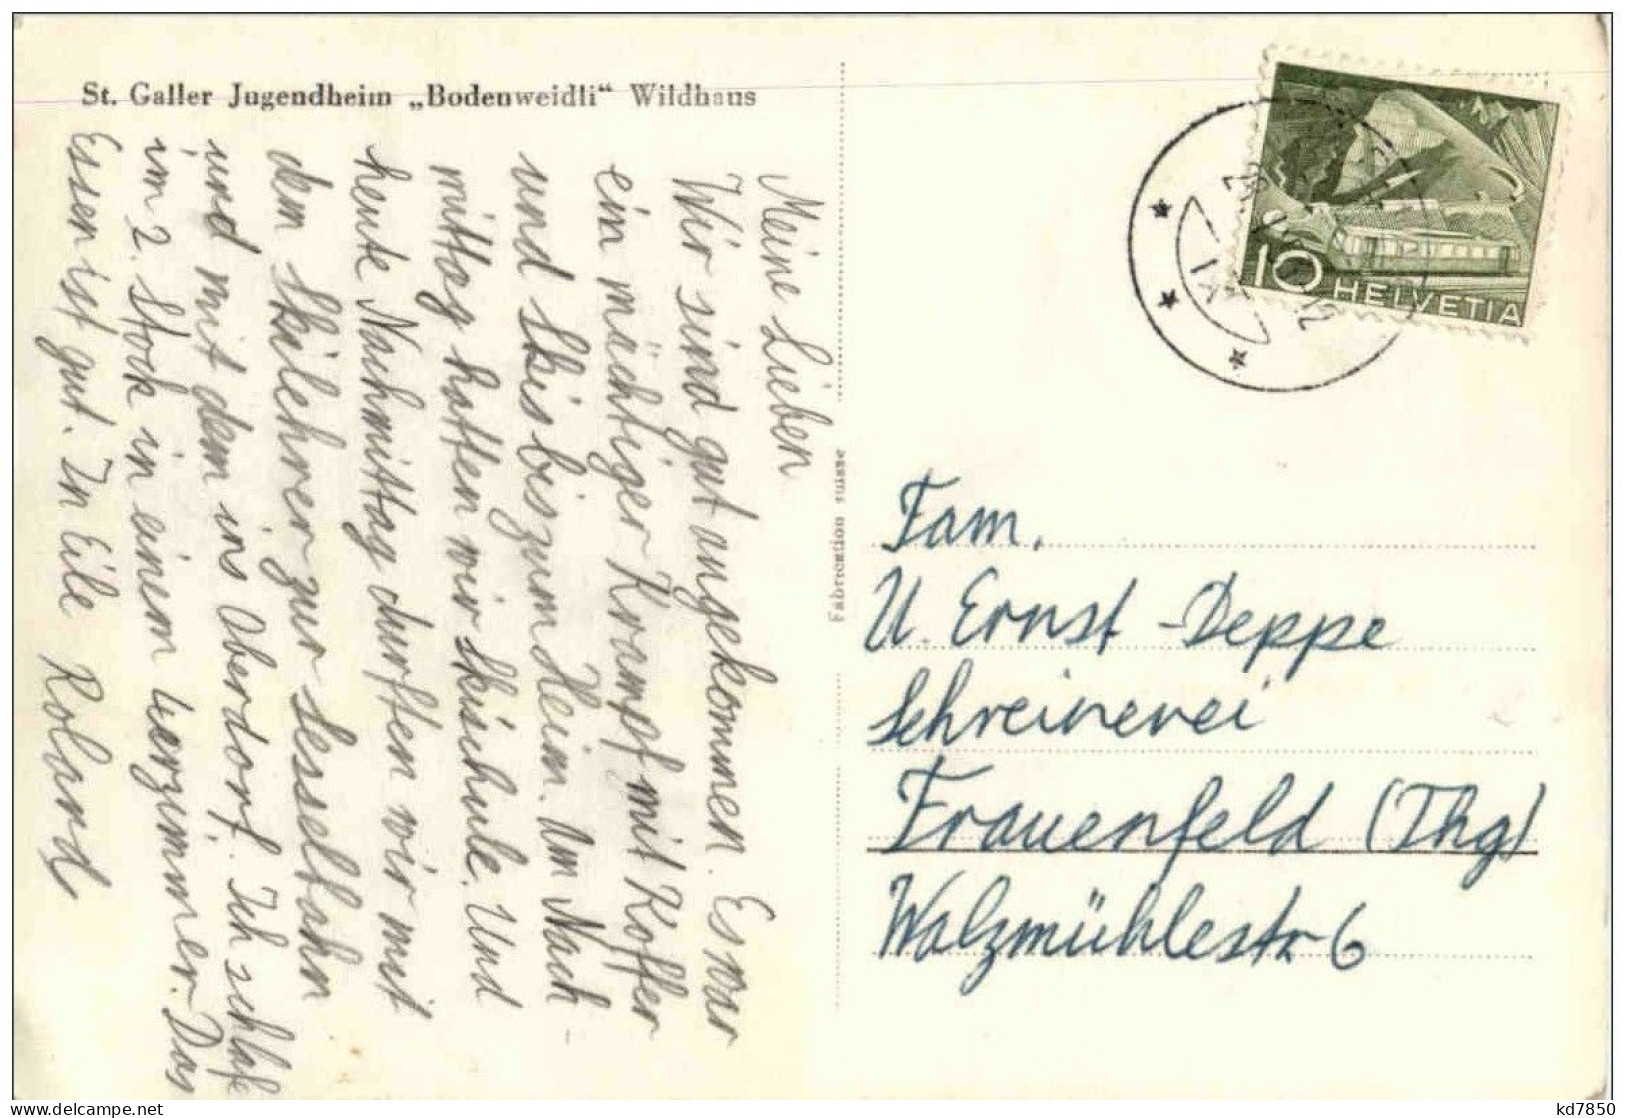 St. Galler Jugendheim „Bodenweidli“ Wildhaus
Meine Lieben
Wir sind gut angekommen. Es war
ein mächtiger Krampf mit Koffer
und Skis bis zum Heim. Am Nach-
mittag hatten wir Skischule. Und
heute Nachmittag durften wir mit
dem Skilehrer zur Sesselbahn
und mit dem ins Oberdorf. Ich schlafe
im 2. Stock in einem 4erzimmer. Das
Essen ist gut. In Eile Roland
Fabrication suisse
10 HELVETIA
Fam.
U. Ernst-Deppe
Schreinerei
Frauenfeld (Thg)
Walzmühlestr. 6
delcampe.net
kd7850